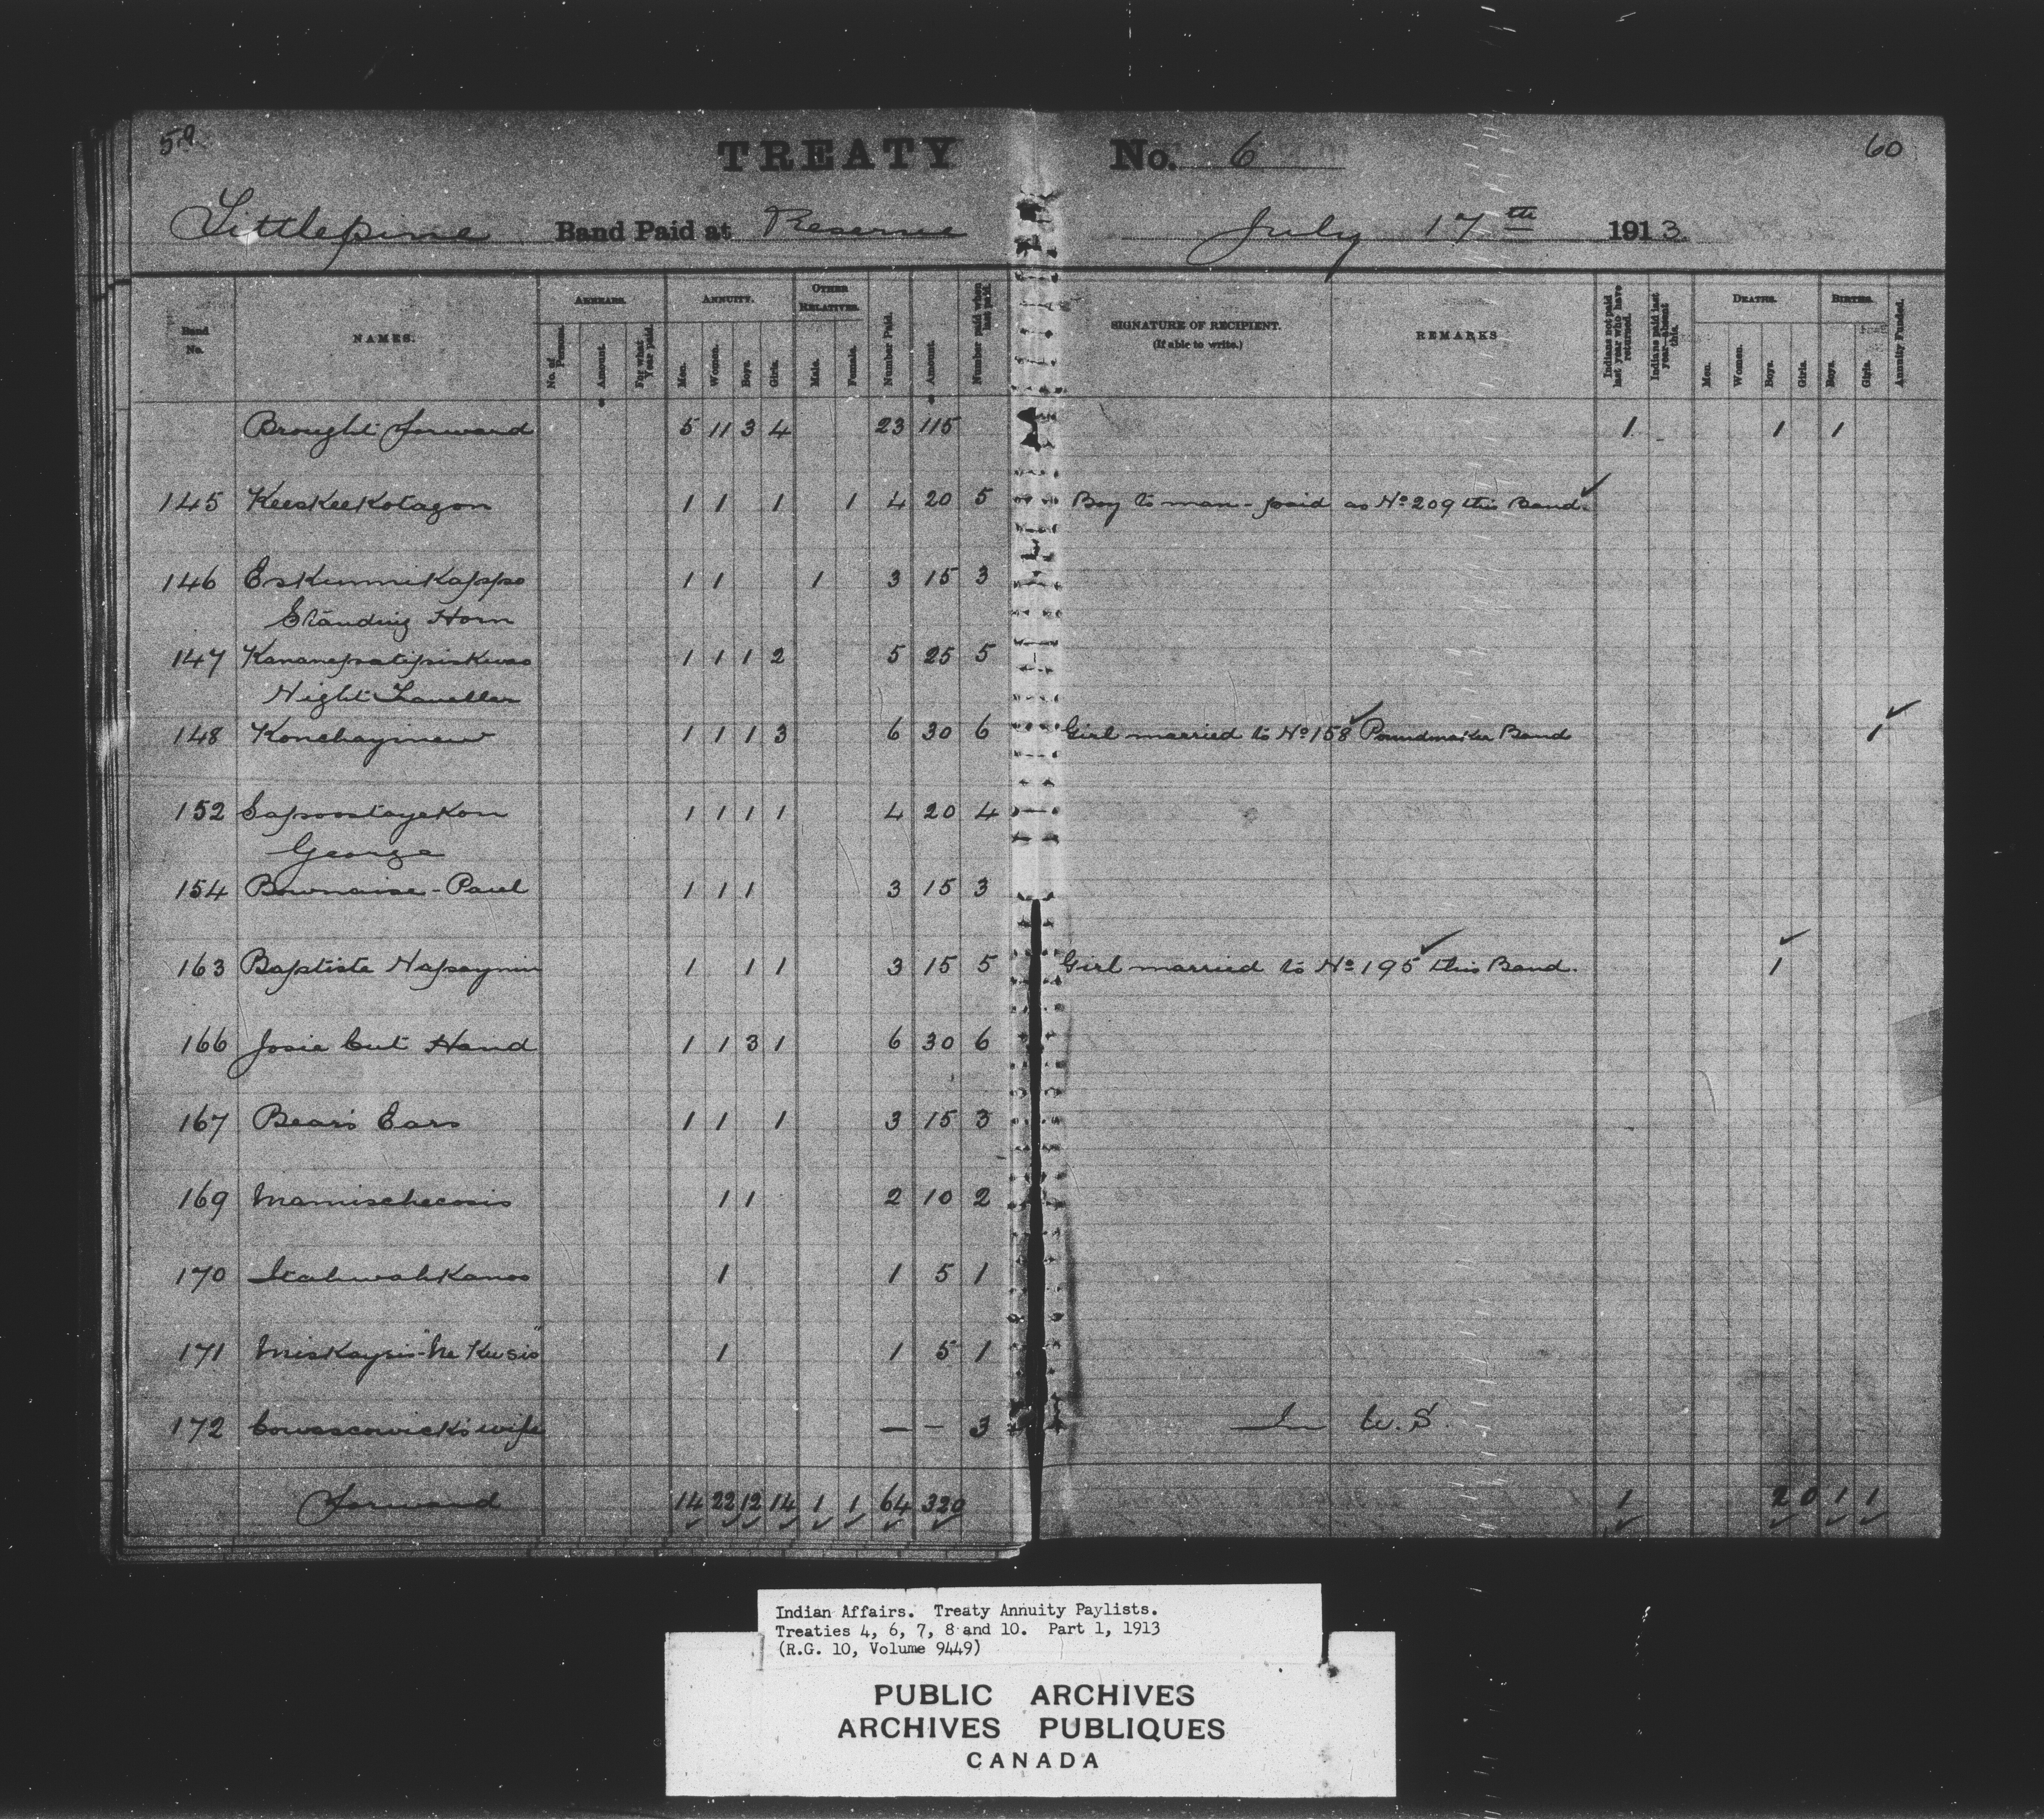 59 TREATY No. 6 60
Littlepine Band Paid at Reserve July 17th 1913
Band No. NAMES. ARREARS. No. of Persons. Amount. For what Year paid. ANNUITY. Men. Women. Boys. Girls. OTHER RELATIVES. Male. Female. Number Paid. Amount. Number paid when last paid. SIGNATURE OF RECIPIENT. (If able to write.) REMARKS Indians not paid last year who have returned. Indians paid last year—absent this. DEATHS. Men. Women. Boys. Girls. BIRTHS. Boys. Girls. Annuity Funded.
Brought forward 5 11 3 4 23 115 1 1 1
145 Keeskeekotagon 1 1 1 1 4 20 5 Boy to man - paid as No 209 this Band.
146 Eskunnikappo 1 1 1 3 15 3
Standing Horn
147 Kananepatipiskwao 1 1 1 2 5 25 5
Night Traveller
148 Konchayinew 1 1 1 3 6 30 6 Girl married to No 158 Poundmaker Band 1
152 Sapoostayekon 1 1 1 1 4 20 4
George
154 Bownaise - Paul 1 1 1 3 15 3
163 Baptiste Napaynin 1 1 1 3 15 5 Girl married to No 195 this Band. 1
166 Josie Cut Hand 1 1 3 1 6 30 6
167 Bears Ears 1 1 1 3 15 3
169 Mamischecosis 1 1 2 10 2
170 1 1 5 1
171 1 1 5 1
172 wife — — 3 In U.S.
Forward 14 22 12 14 1 1 64 320 1 2 0 1 1
Indian Affairs. Treaty Annuity Paylists.
Treaties 4, 6, 7, 8 and 10. Part 1, 1913
(R.G. 10, Volume 9449)
PUBLIC ARCHIVES
ARCHIVES PUBLIQUES
CANADA